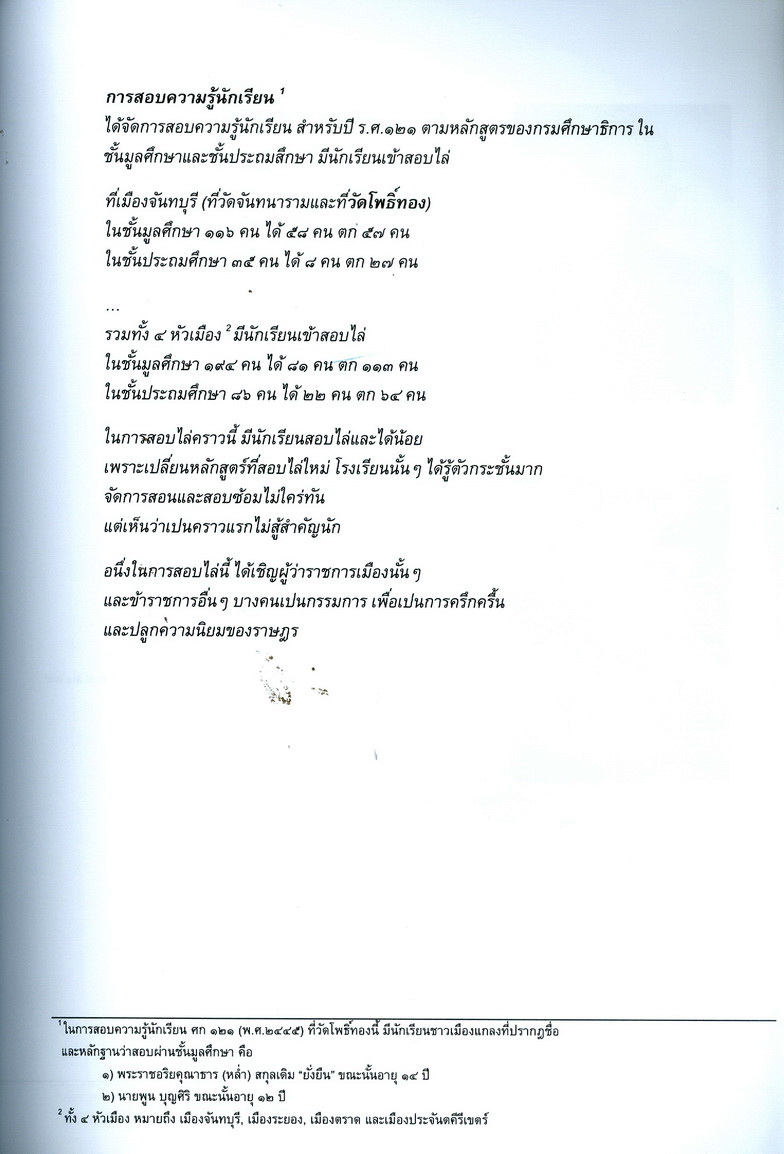 การสอบความรู้นักเรียน ¹
ได้จัดการสอบความรู้นักเรียน สำหรับปี ร.ศ.๑๒๑ ตามหลักสูตรของกรมศึกษาธิการ ใน
ชั้นมูลศึกษาและชั้นประถมสึกษา มีนักเรียนเข้าสอบไล่
ที่เมืองจันทบุรี (ที่วัดจันทนารามและที่วัดโพธิ์ทอง)
ในชั้นมูลศึกษา ๑๑๖ คน ได้ ๕๘ คน ตก ๕๗ คน
ในชั้นประถมศึกษา ๓๕ คน ได้ ๘ คน ตก ๒๗ คน
...
รวมทั้ง ๔ หัวเมือง ² มีนักเรียนเข้าสอบไล่
ในชั้นมูลศึกษา ๑๙๔ คน ได้ ๘๑ คน ตก ๑๑๓ คน
ในชั้นประถมศึกษา ๘๖ คน ได้ ๒๒ คน ตก ๖๔ คน
ในการสอบไล่คราวนี้ มีนักเรียนสอบไล่และได้น้อย
เพราะเปลี่ยนหลักสูตร์ที่สอบไล่ใหม่ โรงเรียนนั้นๆ ได้รู้ตัวกระชั้นมาก
จัดการสอนและสอบซ้อมไม่ใคร่ทัน
แต่เห็นว่าเปนคราวแรกไม่สู้สำคัญนัก
อนึ่งในการสอบไล่นี้ ได้เชิญผู้ว่าราชการเมืองนั้นๆ
และข้าราชการอื่นๆ บางคนเปนกรรมการ เพื่อเปนการครึกครื้น
และปลูกความนิยมของราษฎร
¹ ในการสอบความรู้นักเรียน ศก ๑๒๑ (พ.ศ.๒๔๔๕) ที่วัดโพธิ์ทองนี้ มีนักเรียนชาวเมืองแกลงที่ปรากฏชื่อ
และหลักฐานว่าสอบผ่านชั้นมูลศึกษา คือ
๑) พระราชอริยคุณาธาร (หล่ำ) สกุลเดิม "ยั่งยืน" ขณะนั้นอายุ ๑๔ ปี
๒) นายพูน บุญศิริ ขณะนั้นอายุ ๑๒ ปี
² ทั้ง ๔ หัวเมือง หมายถึง เมืองจันทบุรี, เมืองระยอง, เมืองตราด และเมืองประจันตคีรีเขตร์